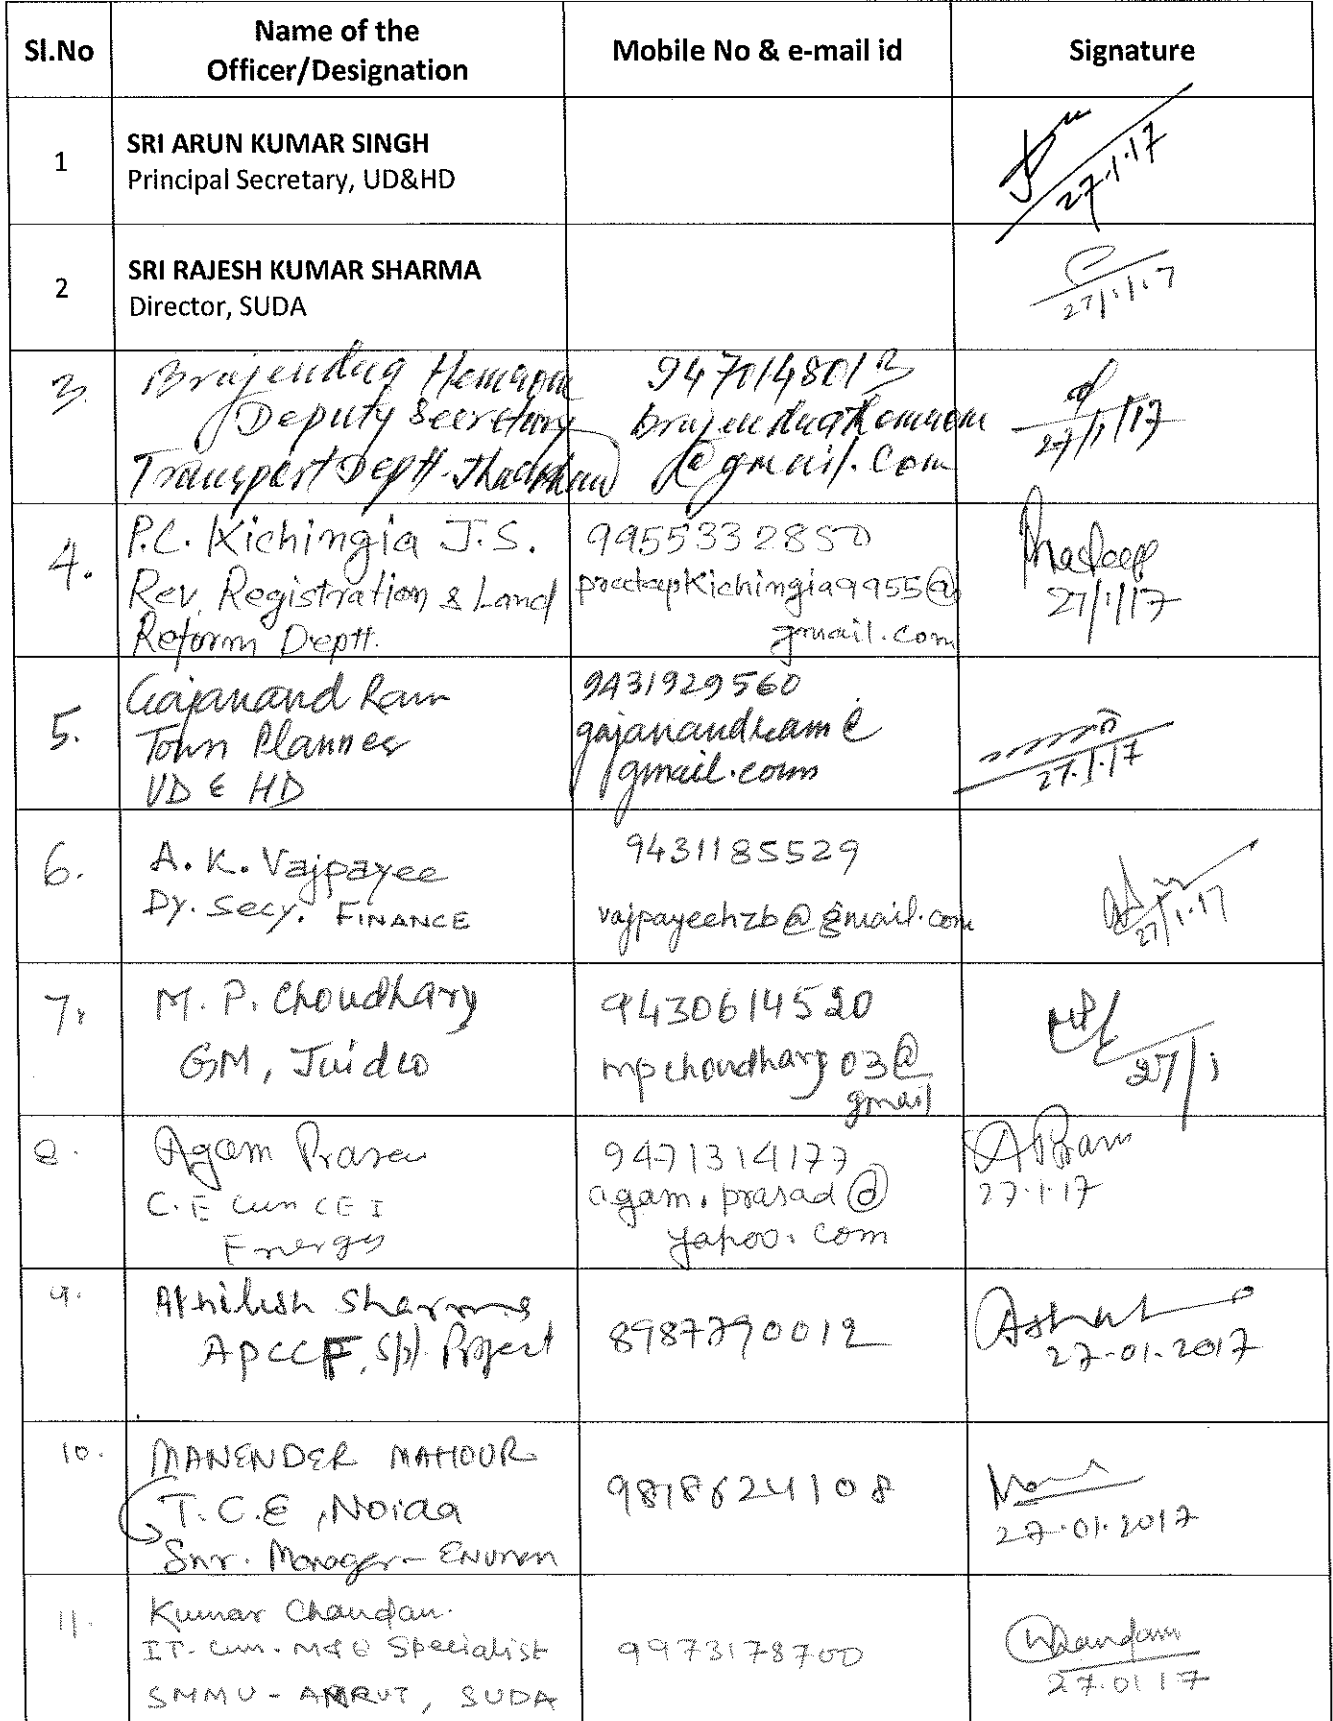 Sl.No
Name of the
Officer/Designation
Mobile No & e-mail id
Signature
1
SRI ARUN KUMAR SINGH
Principal Secretary, UD&HD
27.1.17
2
SRI RAJESH KUMAR SHARMA
Director, SUDA
27/1/17
3.
Brajendra Hemrom
Deputy Secretary
Transport Deptt.
947014801
@gmail.com
27/1/17
4.
P.C. Kichingia J.S.
Rev. Registration & Land
Reform Deptt.
9955332850
pradeepkichingia9955@
gmail.com
Pradeep
27/1/17
5.
Gajanand Ram
Town Planner
UD & HD
9431929560
gajanandram@
gmail.com
27.1.17
6.
A. K. Vajpayee
Dy. Secy. FINANCE
9431185529
vajpayeehzb@gmail.com
27/1.17
7.
M. P. Choudhary
GM, Juidco
9430614520
mpchoudhary03@
gmail
27/1
8.
Agam Prasad
C.E cum CEI
Energy
9471314177
agam.prasad@
yahoo.com
27.1.17
9.
Akhilesh Sharma
APCCF, Spl. Project
8987790012
27-01-2017
10.
MANENDER MAHOUR
T.C.E, Noida
Snr. Manager-
9818624108
27.01.2017
11.
Kumar Chandan.
IT-cum-M&E Specialist
SMMU-AMRUT, SUDA
9973178700
Chandan
27.01.17